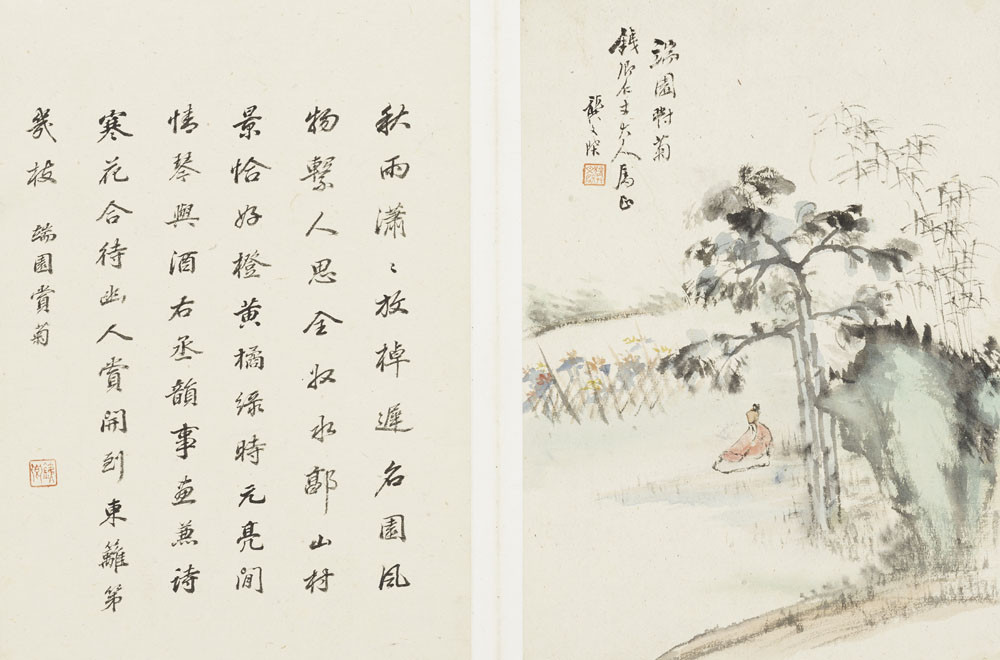 端園對菊
鐵卿仁丈大人属正
秋雨瀟〻放棹遲名園風
物繫人思全收水郭山村
景恰好橙黃橘綠時元亮閒
情琴與酒右丞韻事畫兼詩
寒花合待幽人賞開到東籬第
幾枝 端園賞菊